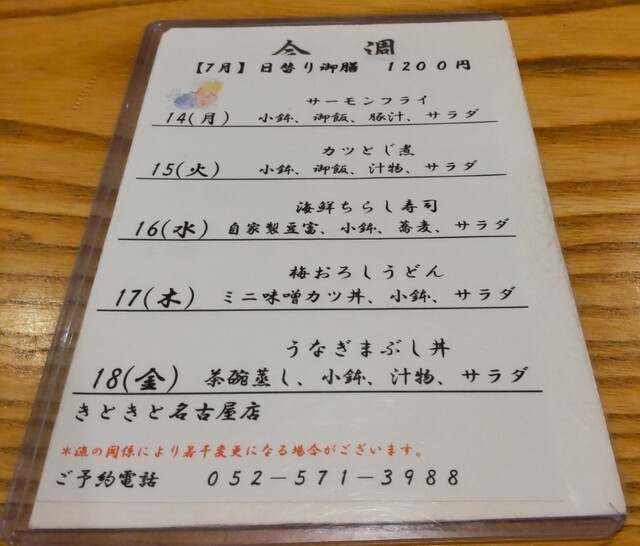 今週
【7月】日替り御膳 1200円
サーモンフライ
14(月) 小鉢、御飯、豚汁、サラダ
カツとじ煮
15(火) 小鉢、御飯、汁物、サラダ
海鮮ちらし寿司
16(水) 自家製豆富、小鉢、蕎麦、サラダ
梅おろしうどん
17(木) ミニ味噌カツ丼、小鉢、サラダ
うなぎまぶし丼
18(金) 茶碗蒸し、小鉢、汁物、サラダ
きときと名古屋店
*漁の関係により若干変更になる場合がございます。
ご予約電話 052-571-3988